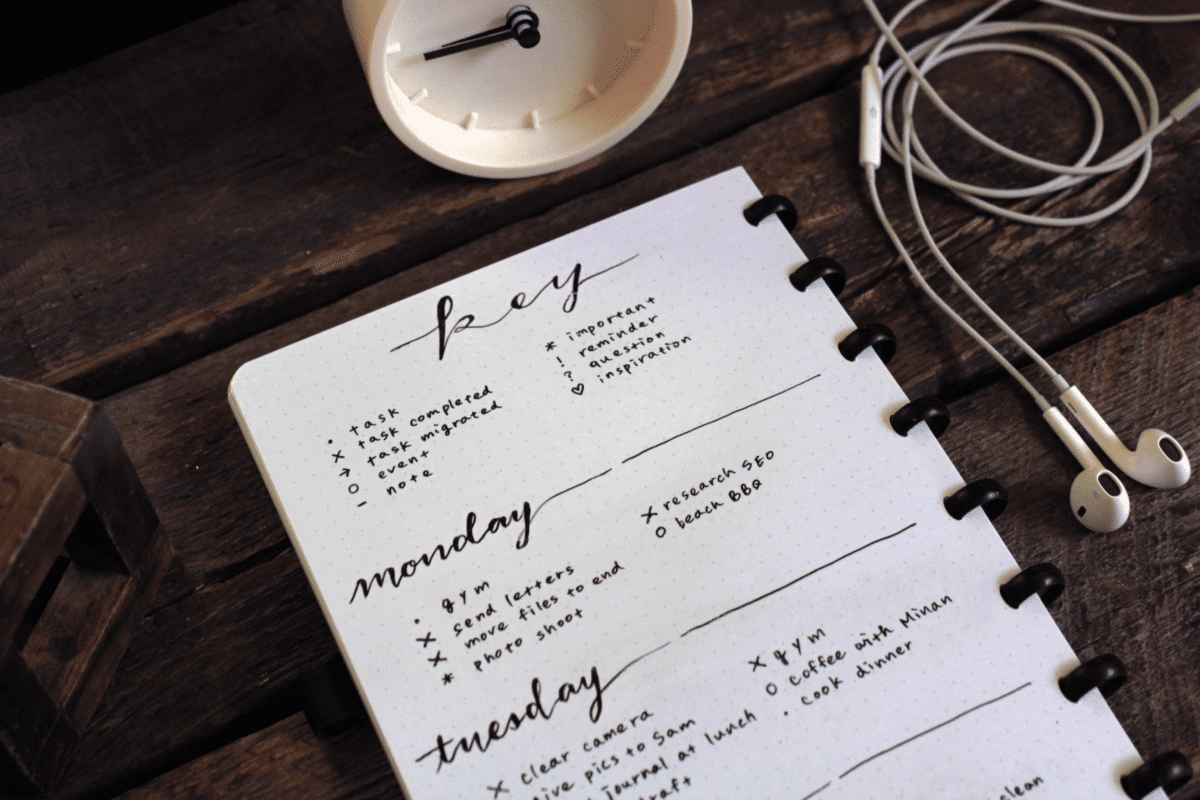 key
• task
x task completed
→ task migrated
o event
– note
* important
! reminder
? question
♡ inspiration
monday
• gym
x send letters
x move files to end
* photo shoot
x research SEO
o beach BBQ
tuesday
x clear camera
pics to Sam
journal at lunch
x gym
o coffee with Minan
• cook dinner
clean